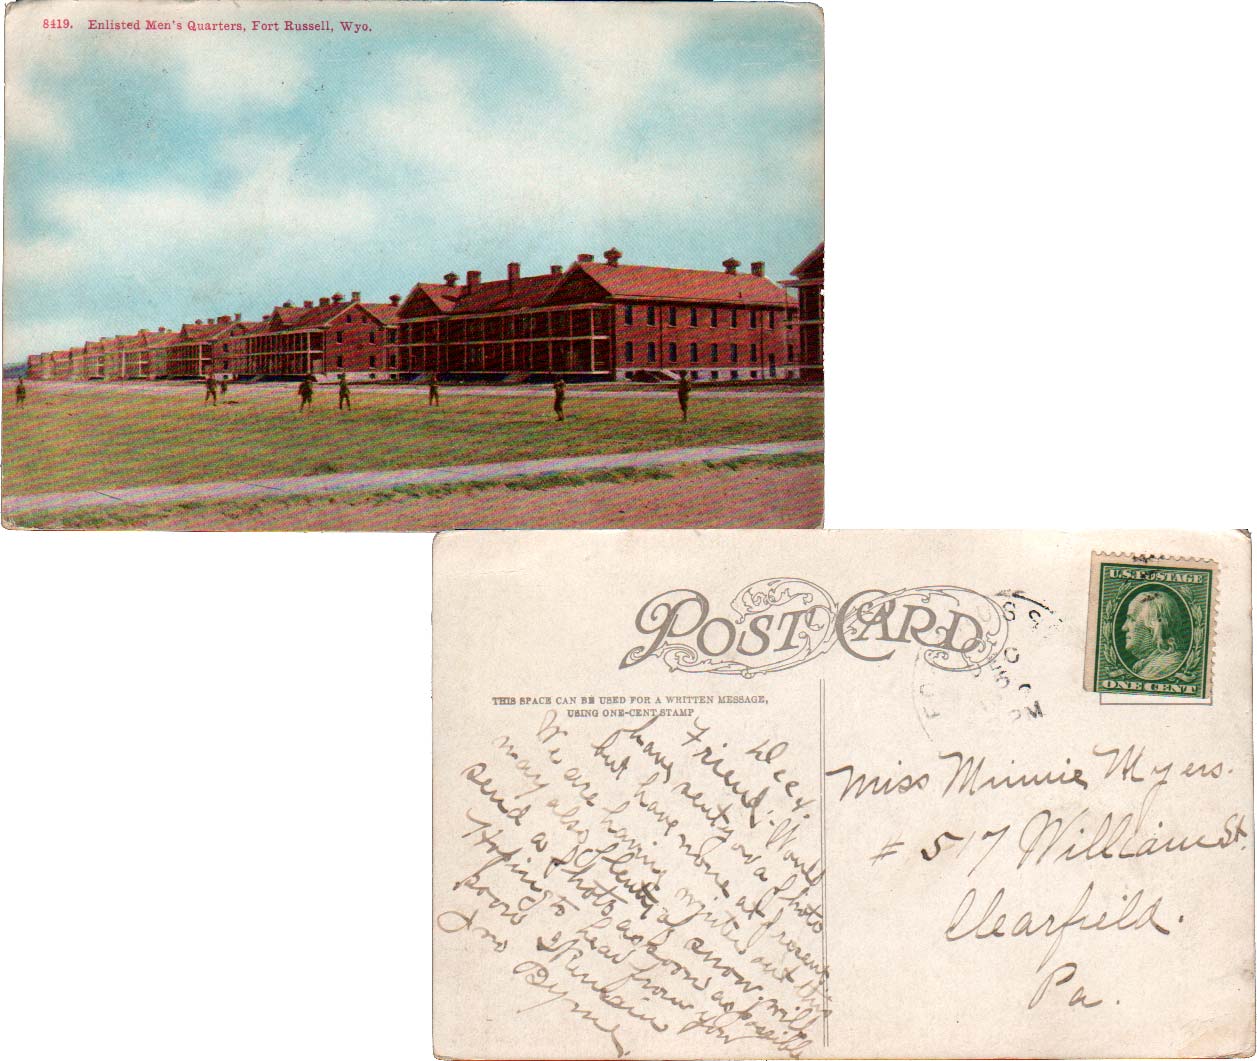 8419. Enlisted Men's Quarters, Fort Russell, Wyo.
POST CARD
THIS SPACE CAN BE USED FOR A WRITTEN MESSAGE,
USING ONE-CENT STAMP
U.S. POSTAGE
ONE CENT
PM
Dear
Friend: Would
have sent you a photo
but have none at present.
We are having winter out this
may also plenty of snow. will
send a photo as soon as possible
Hoping to hear from you
soon I Remain
Jno Byrne.
Miss Minnie Myers.
# 517 William St.
Clearfield.
Pa.